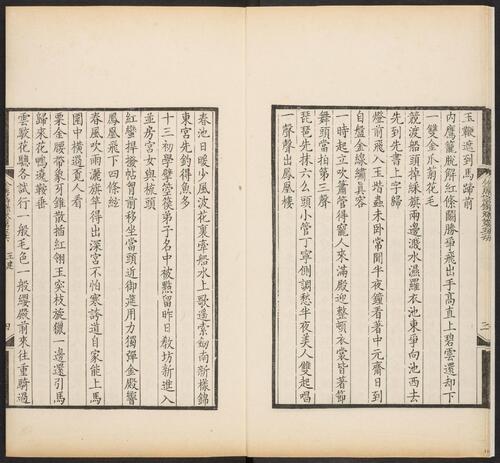 玉鞭遮到馬蹄前
内鷹籠脫解紅絛鬭勝爭飛出手髙直上碧雲還却下
一雙金爪菊花毛
競渡船頭掉綵旗兩邊濺水濕羅衣池東爭向池西去
先到先書上字歸
燈前飛入玉堦蟲未卧常聞半夜鐘看著中元齋日到
自盤金線繡真容
一時起立吹簫管得寵人來滿殿迎整頓衣裳皆著節
舞頭當拍第三聲
琵琶先抹六么頭小管丁寧側調愁半夜美人雙起唱
一聲聲出鳳凰樓
三
春池日暖少風波花裏牽船水上歌遥索劒南新樣錦
東宮先釣得魚多
十三初學擘箜篌弟子名中被㸃留昨日敎坊新進入
並房宮女與梳頭
紅蠻捍撥帖胷前移坐當頭近御筵用力獨彈金殿響
鳳凰飛下四條絃
春風吹雨灑旗竿得出深宮不怕寒誇道自家能上馬
園中橫過覓人看
粟金腰帶象牙錐散插紅翎玉突枝旋獵一邊還引馬
歸來花鴨遶鞍垂
雲駮花驄各試行一般毛色一般纓殿前來往重騎過
王建
四